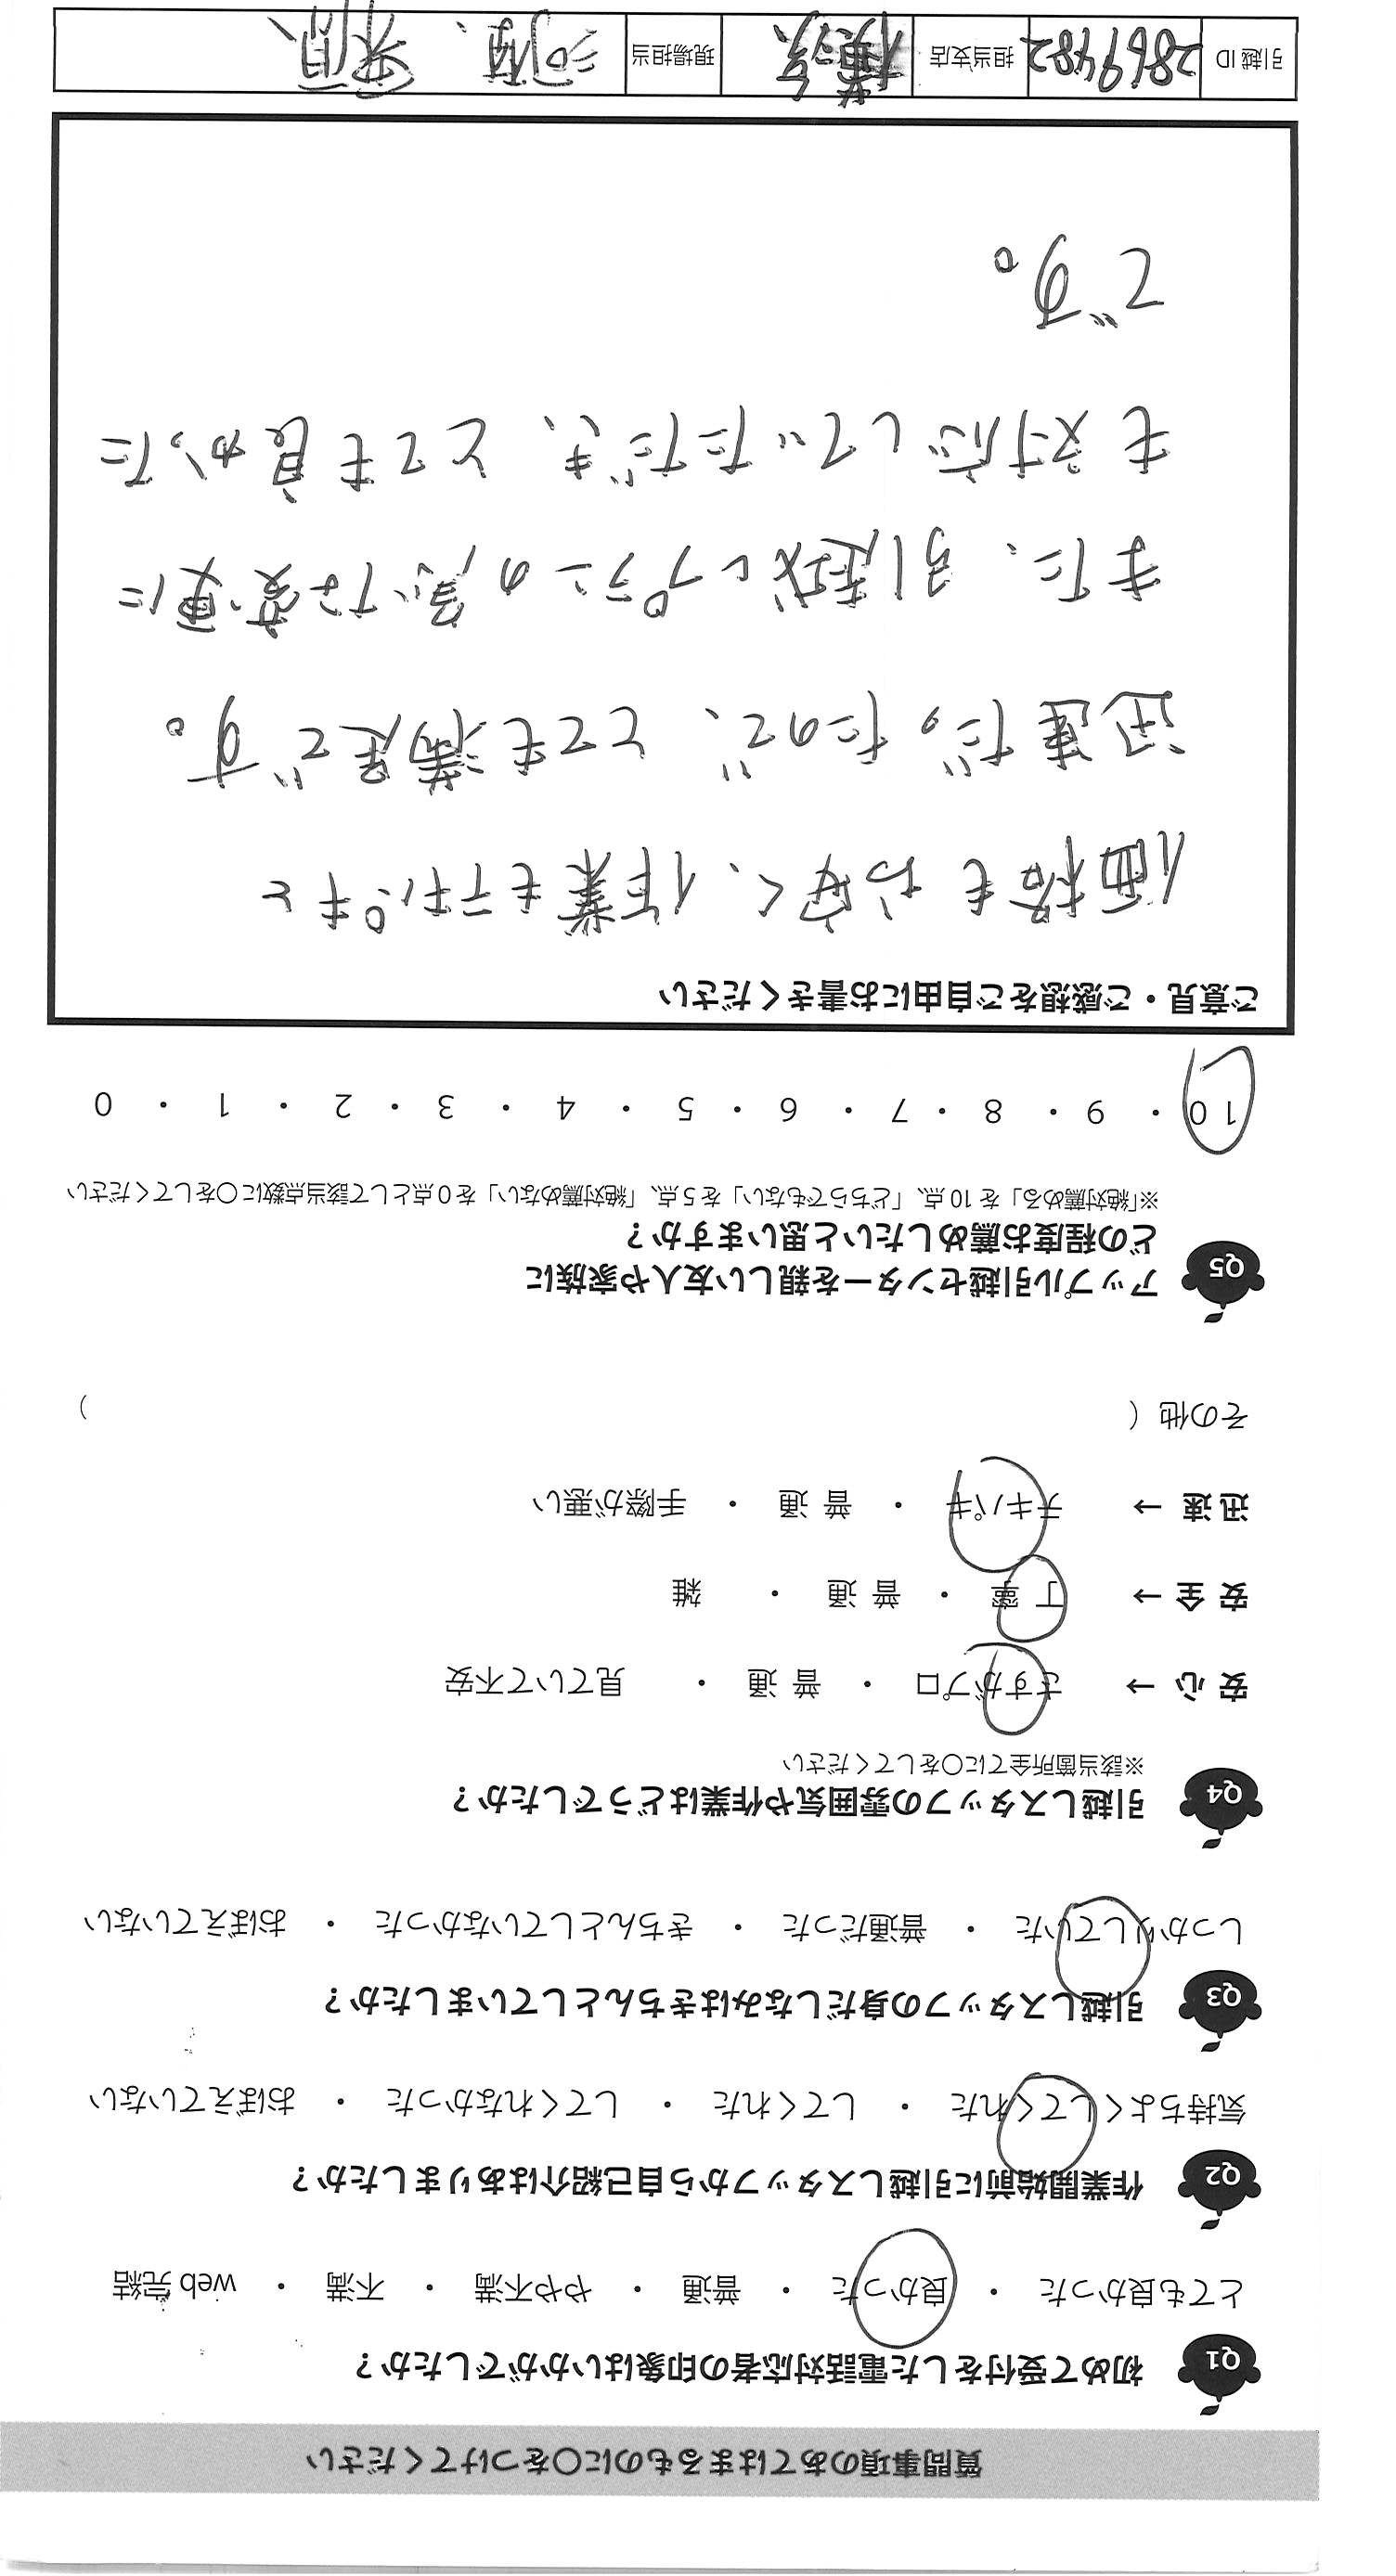 質問事項のあてはまるものに〇をつけてください
Q1 初めて受付をした電話対応者の印象はいかがでしたか？
とても良かった ・ 良かった ・ 普通 ・ やや不満 ・ 不満 ・ web 完結
Q2 作業開始前に引越しスタッフから自己紹介はありましたか？
気持ちよくしてくれた ・ してくれた ・ してくれなかった ・ おぼえていない
Q3 引越しスタッフの身だしなみはきちんとしていましたか？
しっかりしていた ・ 普通だった ・ きちんとしていなかった ・ おぼえていない
Q4 引越しスタッフの雰囲気や作業はどうでしたか？
※該当箇所全てに〇をしてください
安心 → さすがプロ ・ 普通 ・ 見ていて不安
安全 → 丁寧 ・ 普通 ・ 雑
迅速 → テキパキ ・ 普通 ・ 手際が悪い
その他（ ）
Q5 アップル引越センターを親しい友人や家族に
どの程度お薦めしたいと思いますか？
※「絶対薦める」を 10 点、「どちらでもない」を 5 点、「絶対薦めない」を 0 点として該当点数に〇をしてください
10 ・ 9 ・ 8 ・ 7 ・ 6 ・ 5 ・ 4 ・ 3 ・ 2 ・ 1 ・ 0
ご意見・ご感想をご自由にお書きください
価格もお安く、作業もテキパキと
迅速だったので、とても満足です。
また、引越しプランの急な変更に
も対応していただき、とても良かった
です。
引越 ID 2869482 担当支店 横浜 現場担当